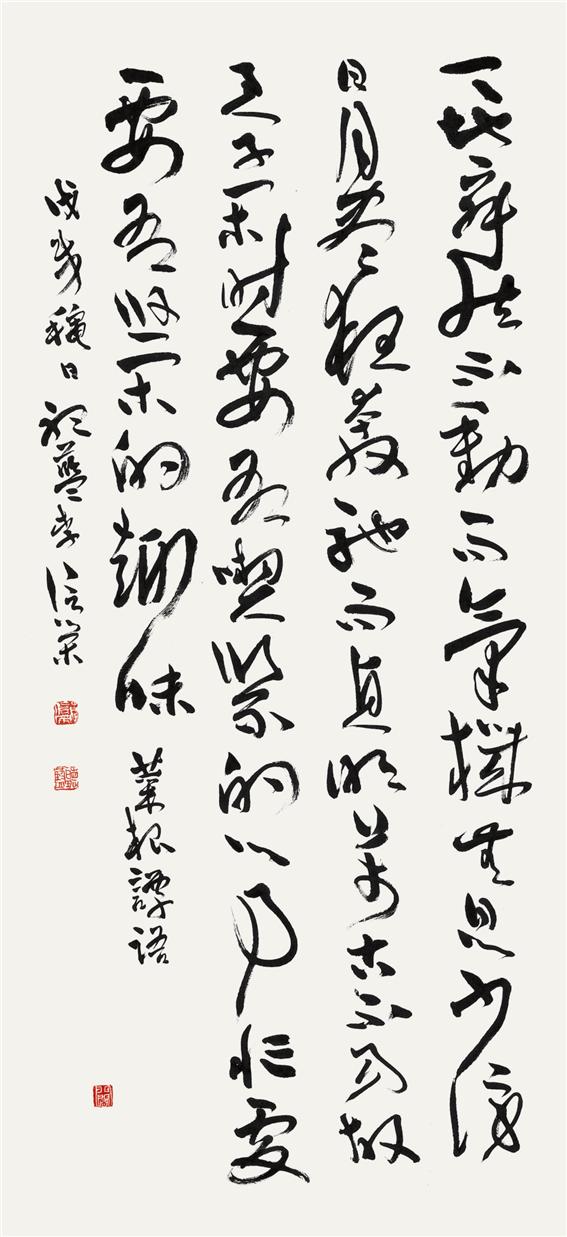 天地寂然不動而氣機無息少停
日月晝夜奔馳而貞明萬古不易故
君子閑時要有喫緊的心事忙處
要有悠閑的趣味 菜根譚語
戊戌穐日 藍李信榮